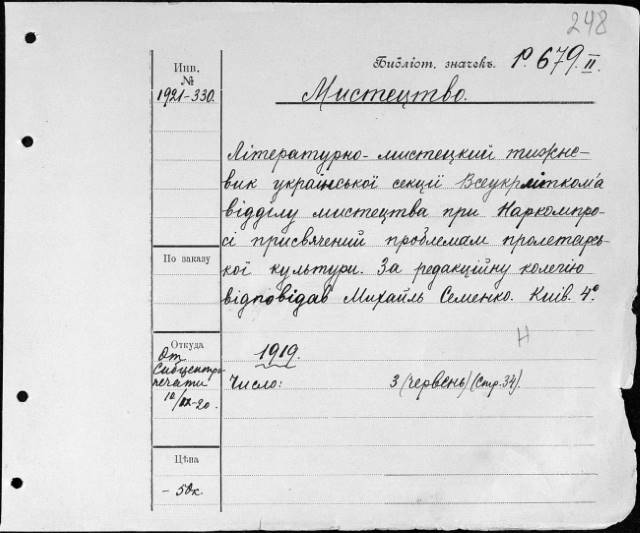 248
Библіот. значекъ. Р. 679. II.
Инв.
№
1921-330.
Мистецтво.
Літературно-мистецкий тижне-
вик української секції Всеукрлітком'а
відділу мистецтва при Наркомпро-
сі присвячений проблемам пролетарсь-
кої культури. За редакційну колегію
відповідав Михайль Семенко. Київ. 4º
По заказу
Н
Откуда
От
Сибцентро-
печати
10/IX-20.
1919.
Число: 3 (червень) (Стр. 34).
Цѣна
- 50к.